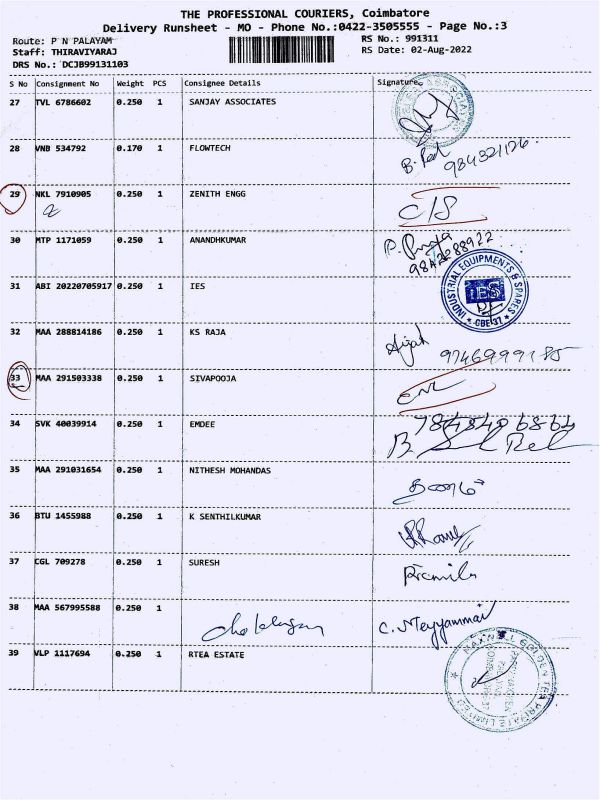 THE PROFESSIONAL COURIERS, Coimbatore
Delivery Runsheet - MO - Phone No.:0422-3505555 - Page No.:3
Route: P N PALAYAM
RS No.: 991311
Staff: THIRAVIYARAJ
RS Date: 02-Aug-2022
DRS No.: DCJB99131103
S No Consignment No Weight PCS Consignee Details Signature
27 TVL 6786602 0.250 1 SANJAY ASSOCIATES
28 VNB 534792 0.170 1 FLOWTECH
29 NKL 7910905 0.250 1 ZENITH ENGG C/S
30 MTP 1171059 0.250 1 ANANDHKUMAR
31 ABI 20220705917 0.250 1 IES
INDUSTRIAL EQUIPMENTS & SPARES
IES
* CBE-37 *
32 MAA 288814186 0.250 1 KS RAJA
33 MAA 291503338 0.250 1 SIVAPOOJA
34 SVK 40039914 0.250 1 EMDEE
35 MAA 291031654 0.250 1 NITHESH MOHANDAS
36 BTU 1455988 0.250 1 K SENTHILKUMAR
37 CGL 709278 0.250 1 SURESH
38 MAA 567995588 0.250 1 C. Meyyammai
39 VLP 1117694 0.250 1 RTEA ESTATE